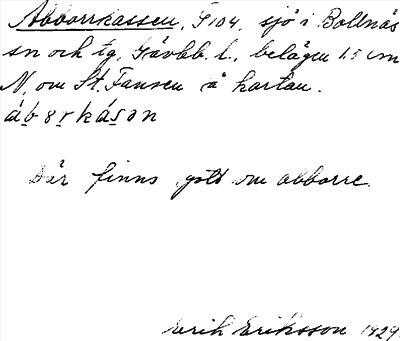 Abborrkassen, S 104, sjö i Bollnäs
sn och tg, Gävbb. l., belägen 1.5 cm
N. om St. Fansen å kartan.
áb ɘr kásɘn
Där finns gott om abborre.
Erik Eriksson 1929.